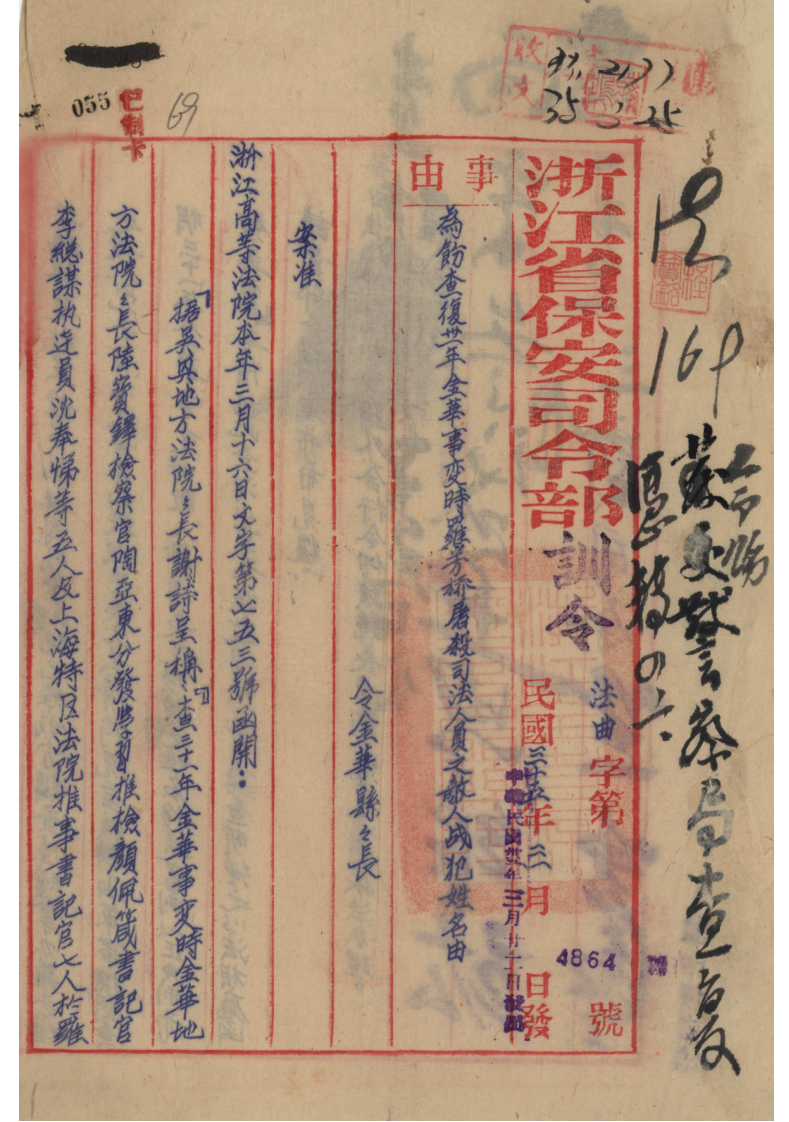 收文
35 3 25
169
令飭
警察局查
浙江省保安司令部訓令
法曲字第4864號
民國三十五年三月 日發
中華民國卅五年三月廿二日發出
事由
為飭查復卅一年金華事变時羅芳桥屠殺司法人員之敵人战犯姓名由
令金華縣々長
案准
浙江高等法院本年三月十六日文字第七五三號函開：
「据吳興地方法院々長謝詩呈稱『查三十一年金華事变時金華地
方法院々長陸寶鐸檢察官陶亞東分發學習推檢顏佩箴書記官
李總謀执达員沈奉悌等五人及上海特区法院推事書記官七人於羅
69
055
已制卡